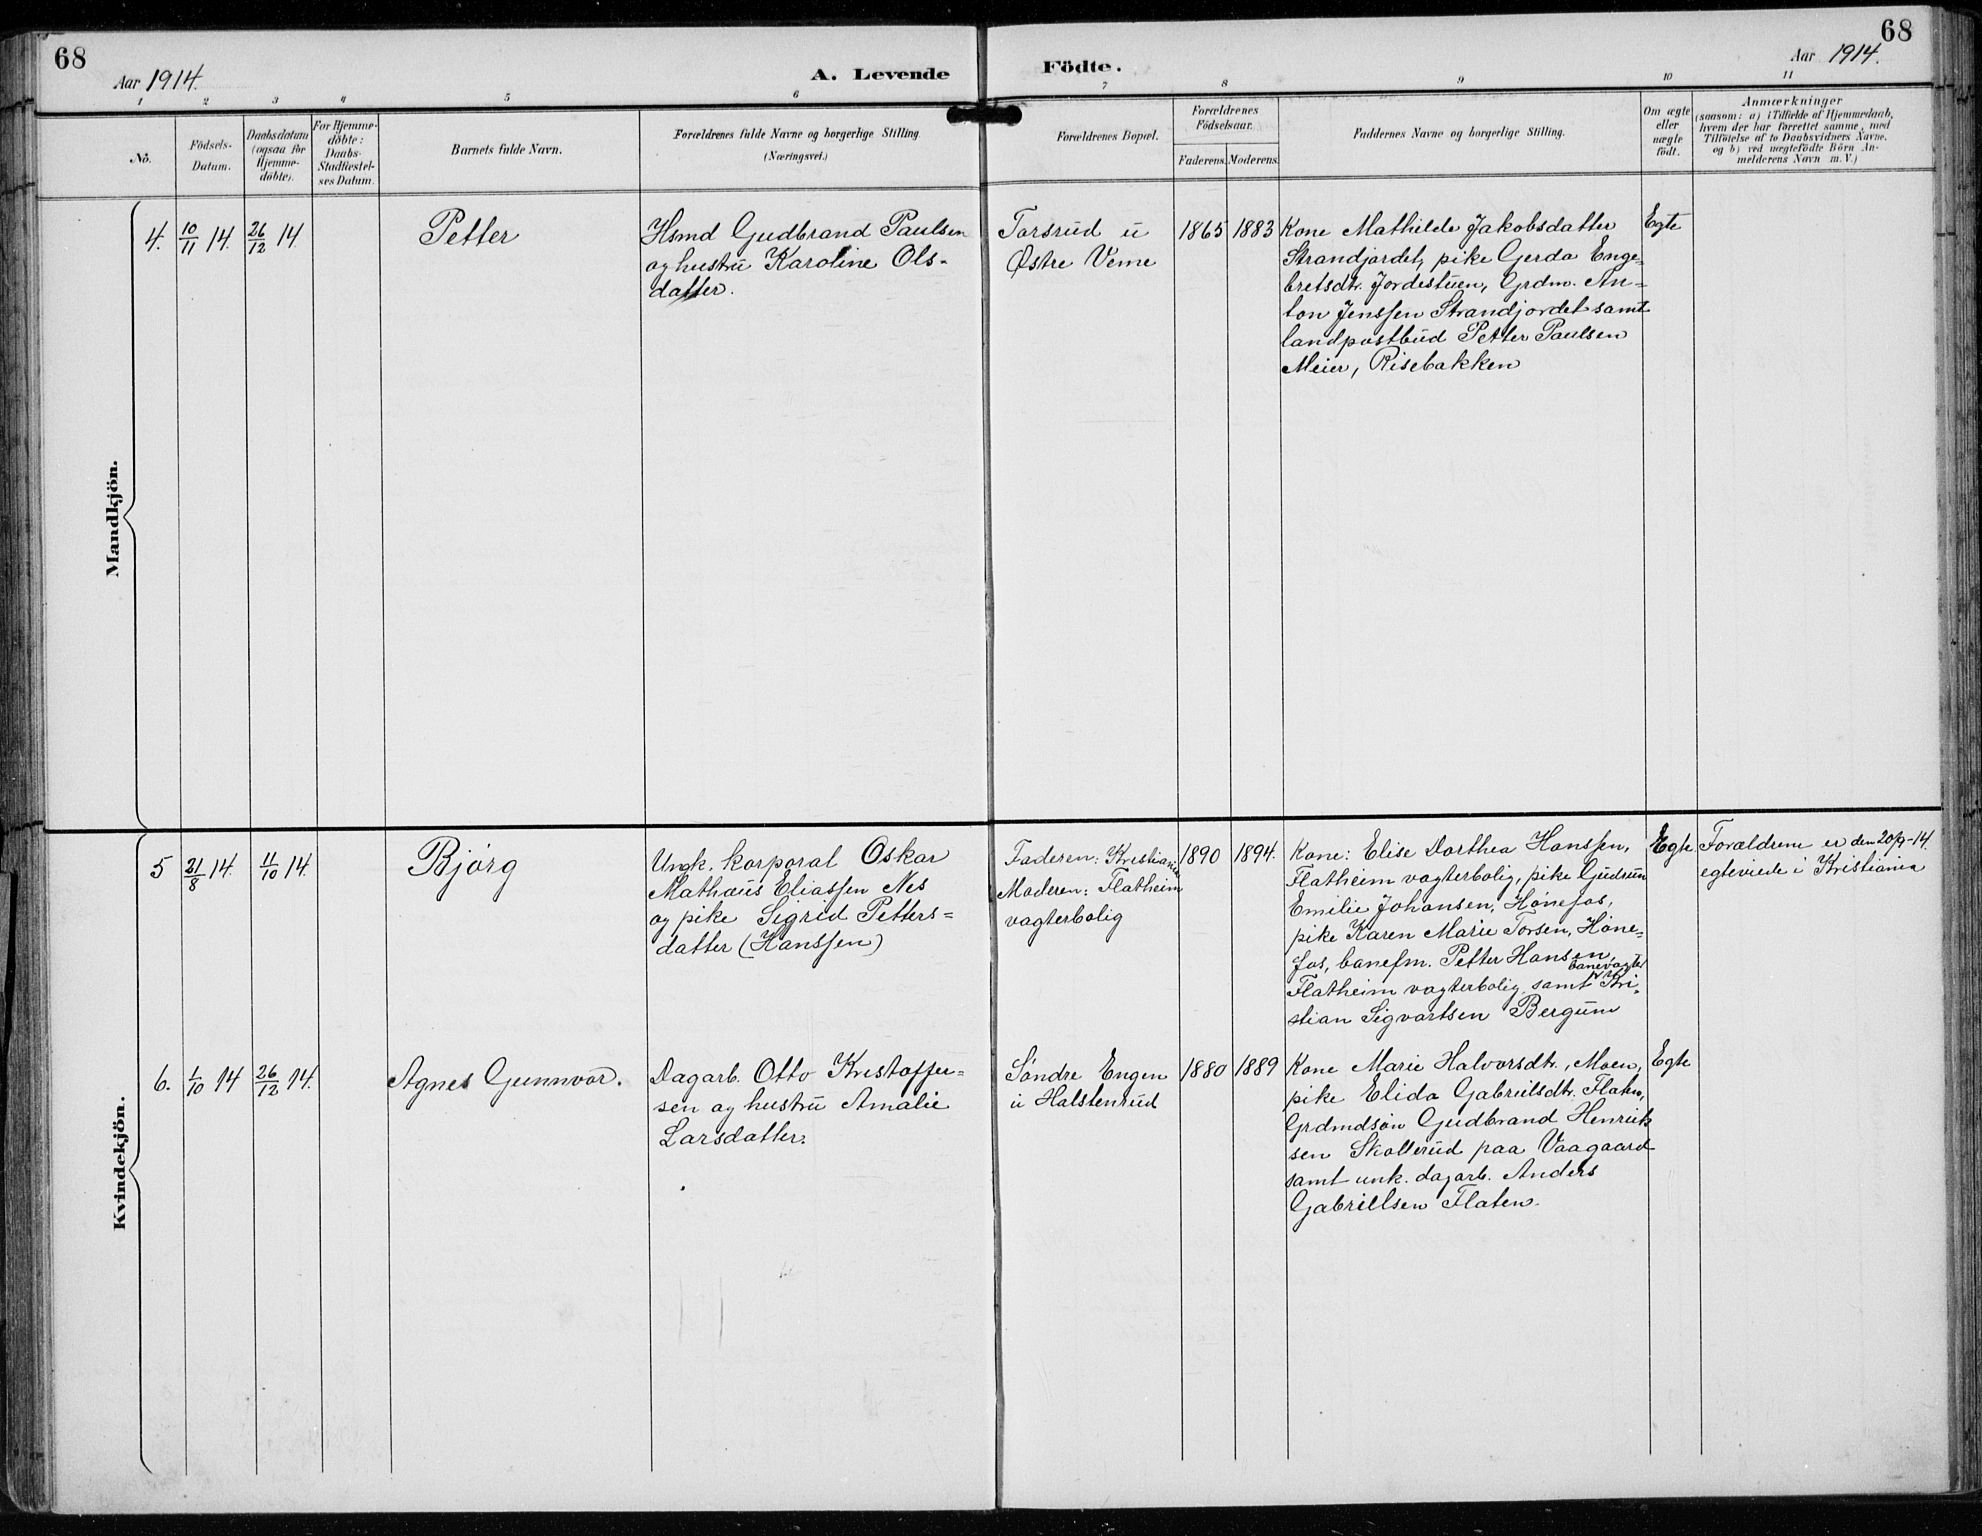 68
Aar 1914.
A. Levende
Födte.
68
Aar 1914.
1 2 3 4 5 6 7 8 9 10 11
No.
Födsels-
Datum.
Daabsdatum
(ogsaa for
Hjemme-
döbte).
For Hjemme-
döbte:
Daabs-
Stadfæstel-
ses Datum.
Barnets fulde Navn.
Forældrenes fulde Navne og borgerlige Stilling.
(Næringsvei.)
Forældrenes Bopæl.
Forældrenes
Födselsaar.
Faderens. Moderens.
Faddernes Navne og borgerlige Stilling.
Om ægte
eller
uægte
födt.
Anmærkninger
(saasom: a) i Tilfælde af Hjemmedaab,
hvem der har forrettet samme, med
Tilföielse af to Daabsvidners Navne.
og b) ved uægtefödte Börn An-
melderens Navn m. V.)
Mandkjön.
4.
10/11 14.
26/12 14.
Petter
Hsmd Gudbrand Paulsen
og hustru Karoline Ols-
datter.
Torsrud u
Østre Veme
1865
1883
Kone Mathilde Jakobsdatter
Strandjordet, pike Gerda Enge-
bretsdtr. Jordestuen, Grdm. An-
ton Jenssen Strandjordet samt
landpostbud Petter Paulsen
Meier, Risebakken
Egte
Kvindekjön.
5
21/8 14.
11/10 14.
Bjørg
Ungk. korporal Oskar
Mathæus Eliassen Nes
og pike Sigrid Petters-
datter (Hanssen)
Faderen: Kristiania
Moderen: Flatheim
vagterbolig
1890
1894.
Kone: Elise Dorthea Hanssen,
Flatheim vagterbolig, pike Gudrun
Emilie Johansen, Hønefos,
pike Karen Marie Torsen, Høne-
fos, banefm. Petter Hansen
Flatheim vagterbolig, samt banevagter Kri-
stian Sigvartsen Bergum
Egte
Forældrene er den 20/9-14
egteviede i Kristiania
6.
1/10 14
26/12 14.
Agnes Gunnvor.
Dagarb. Otto Kristoffer-
sen og hustru Amalie
Larsdatter.
Søndre Engen
u Halstenrud
1880
1889
Kone Marie Halvorsdtr., Moen,
pike Elida Gabrielsdtr. Flaten,
Grdmdsøn Gudbrand Henrik
sen Skollerud paa Vaagaard
samt unk. dagarb. Anders
Gabrillsen Flaten.
Egte